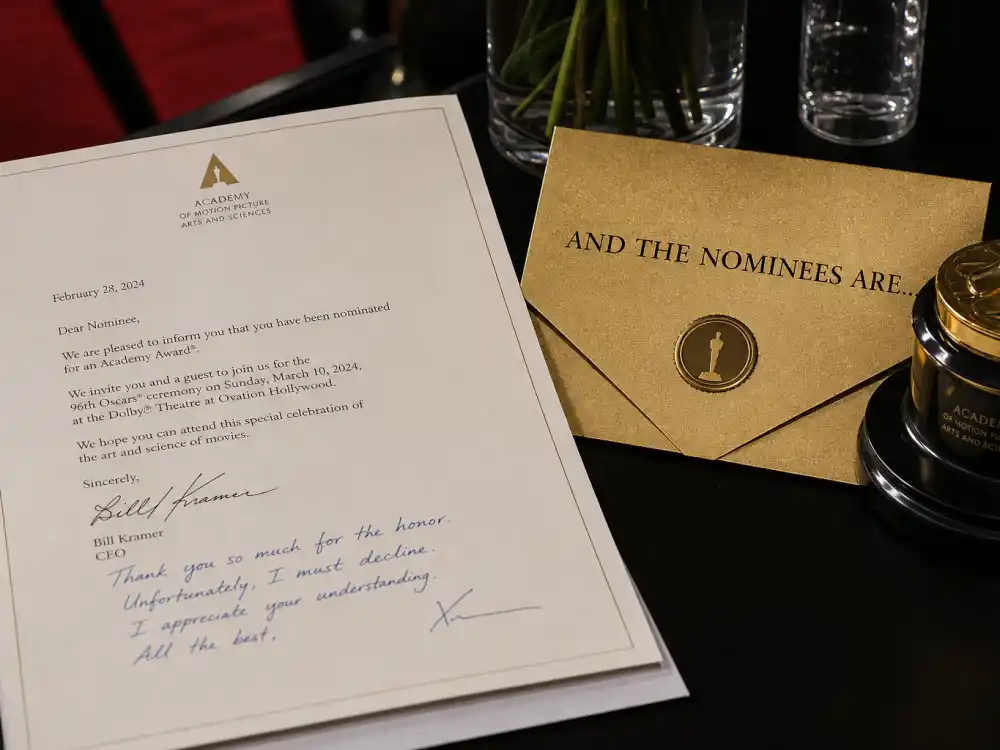 ACADEMY
OF MOTION PICTURE
ARTS AND SCIENCES
February 28, 2024
Dear Nominee,
We are pleased to inform you that you have been nominated
for an Academy Award®.
We invite you and a guest to join us for the
96th Oscars® ceremony on Sunday, March 10, 2024,
at the Dolby® Theatre at Ovation Hollywood.
We hope you can attend this special celebration of
the art and science of movies.
Sincerely,
Bill Kramer
Bill Kramer
CEO
Thank you so much for the honor.
Unfortunately, I must decline.
I appreciate your understanding.
All the best,
AND THE NOMINEES ARE...
ACADE
OF MOTION P
ARTS AND SC